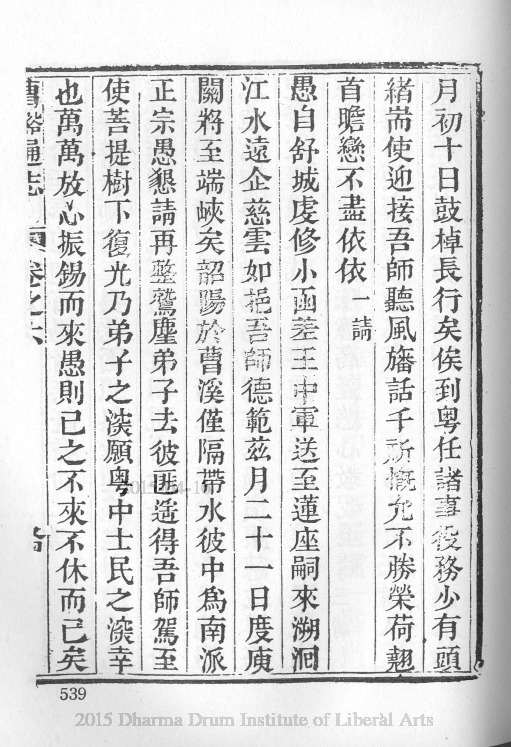 月初十日鼓棹長行矣俟到粤任諸事役務少有頭
緒耑使迎接吾師聽風旛話千祈慨允不勝榮荷翹
首瞻戀不盡依依一請
愚自舒城虔修小函差王中軍送至蓮座嗣來溯洄
江水遠企慈雲如挹吾師德範茲月二十一日度庾
關將至端峽矣韶陽於曹溪僅隔帶水彼中爲南派
正宗愚懇請再整鷲塵弟子去彼匪遥得吾師駕至
使菩提樹下復光乃弟子之深願粤中士民之深幸
也萬萬放心振錫而來愚則已之不來不休而已矣
曹谿通志 卷之六
539
2015 Dharma Drum Institute of Liberal Arts